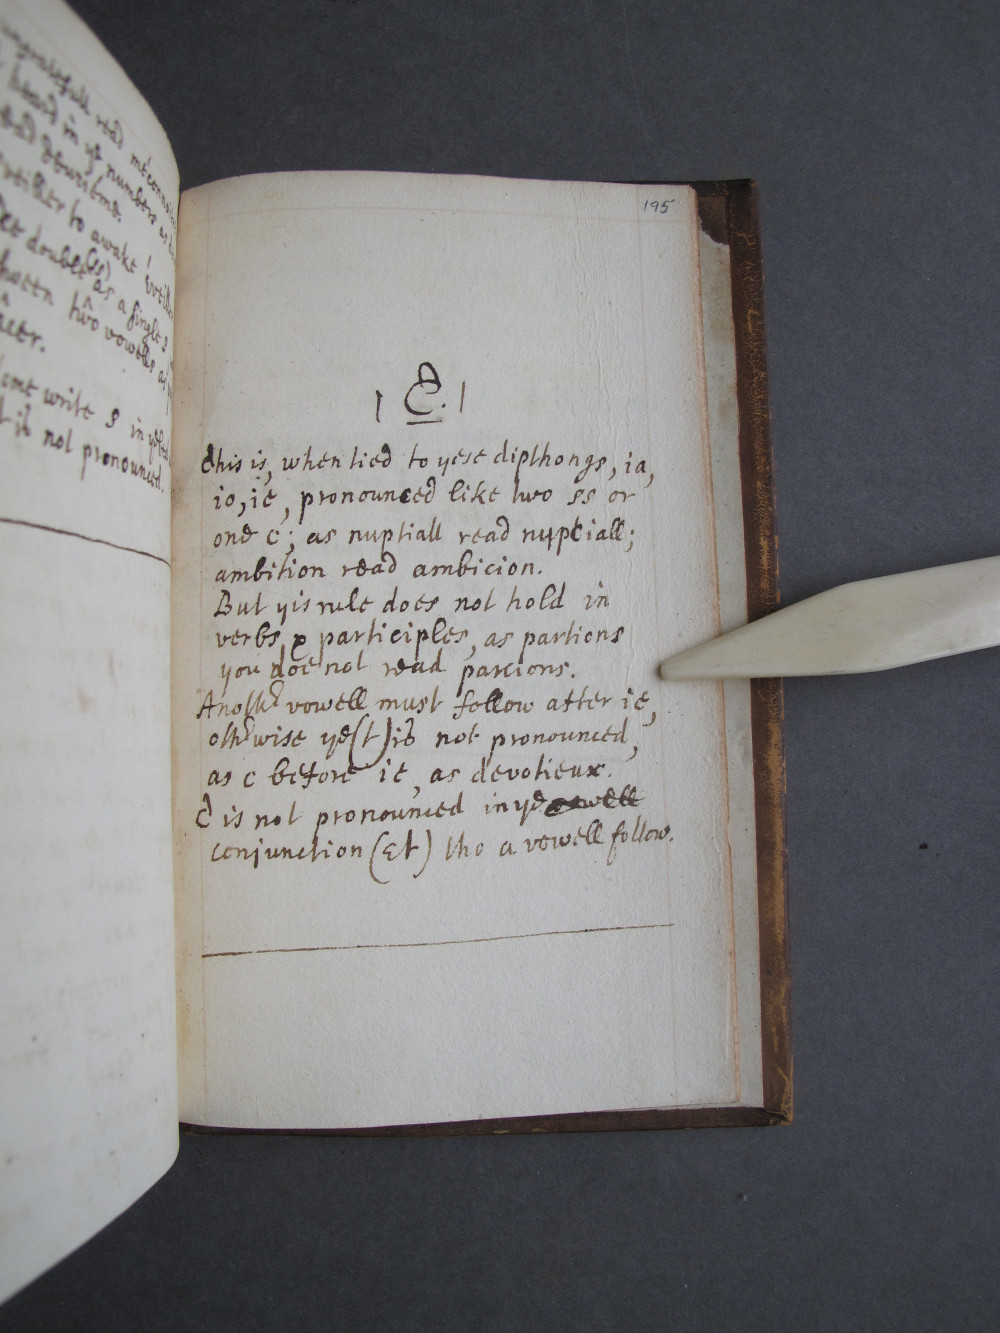 ungratefull read
heard in ye numbers as
to awake
double (ss) as a single s
between two vowells as
some write s in
it is not pronounced.
195
| T. |
This is, when tied to yese dipthongs, ia,
io, ie, pronounced like two ss or
one c; as nuptiall read nupciall;
ambition read ambicion.
But yis rule does not hold in
verbs & participles, as partions
you doe not read parcions.
Anothr vowell must follow after ie,
othrwise ye (t) is not pronounced,
as c before ie, as devotieux.
T is not pronounced in ye
conjunction (Et) tho a vowell follow.